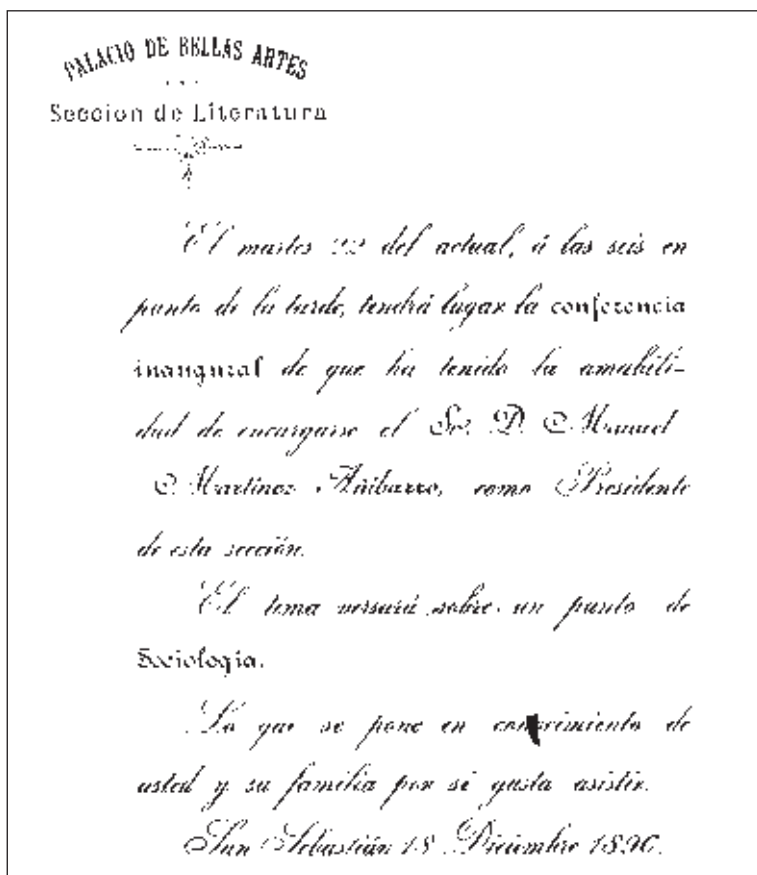 PALACIO DE BELLAS ARTES
Seccion de Literatura
El martes 22 del actual, á las seis en
punto de la tarde, tendrá lugar la conferencia
inaugural de que ha tenido la amabili-
dad de encargarse el Sr. D. Manuel
Martinez Añibarro, como Presidente
de esta sección.
El tema versará sobre un punto de
Sociología.
Lo que se pone en conocimiento de
usted y su familia por si gusta asistir.
San Sebastián 18 Diciembre 1896.